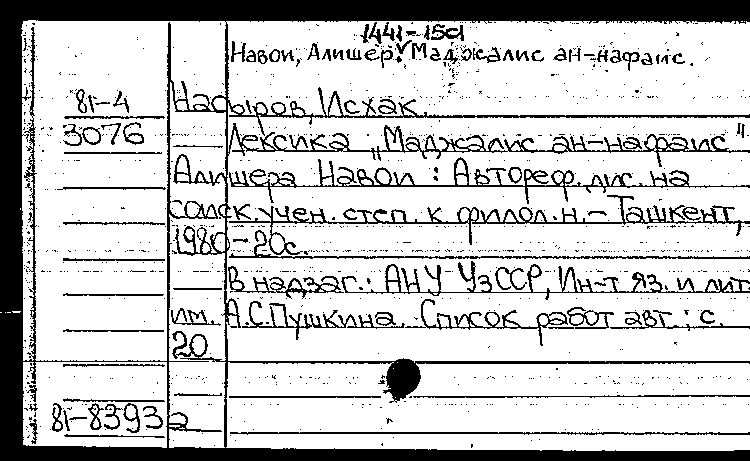 1441-1501
Навои, Алишер. Маджалис ан-нафаис.
81-4 Насыров, Исхак.
3076 Лексика „Маджалис ан-нафаис"
Алишера Навои : Автореф. дис. на
соиск. учен. степ. к. филол. н. - Ташкент,
1980 - 20с.
В надзаг.: АНУ УзССР, Ин-т яз. и лит.
им. А.С.Пушкина. Список работ авт.: с.
20
81-8393а